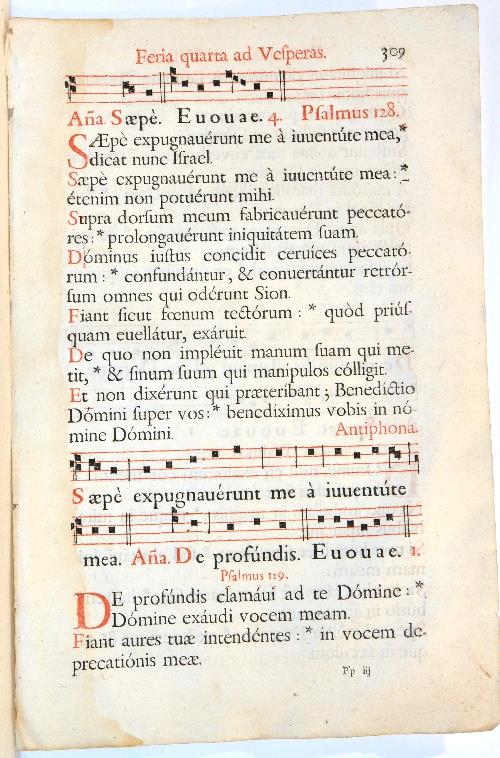 Feria quarta ad Veſperas. 309
Aña. Sæpè. Euouae. 4. Pſalmus 128.
SÆpè expugnauérunt me à iuuentúte mea,*
dicat nunc Iſrael.
Sæpè expugnauérunt me à iuuentúte mea: *
étenim non potuérunt mihi.
Supra dorſum meum fabricauérunt peccató-
res: * prolongauérunt iniquitátem ſuam.
Dóminus iuſtus concidit ceruíces peccató-
rum: * confundántur, & conuertántur retrór-
ſum omnes qui odérunt Sion.
Fiant ſicut fœnum tectórum: * quòd priúſ-
quam euellátur, exáruit.
De quo non impléuit manum ſuam qui me-
tit, * & ſinum ſuum qui manipulos cólligit.
Et non dixérunt qui præteríbant; Benedíctio
Dómini ſuper vos: * benediximus vobis in nó-
mine Dómini. Antiphona.
Sæpè expugnauérunt me à iuuentúte
mea. Aña. De profúndis. Euouae. 1.
Pſalmus 129.
DE profúndis clamáui ad te Dómine: *
Dómine exáudi vocem meam.
Fiant aures tuæ intendéntes: * in vocem de-
precatiónis meæ.
Pp iij